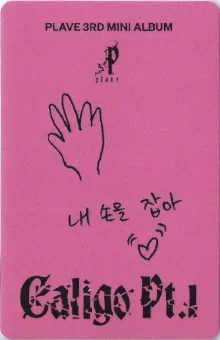 PLAVE 3RD MINI ALBUM
P
plave
내 손을 잡아
Caligo Pt.1